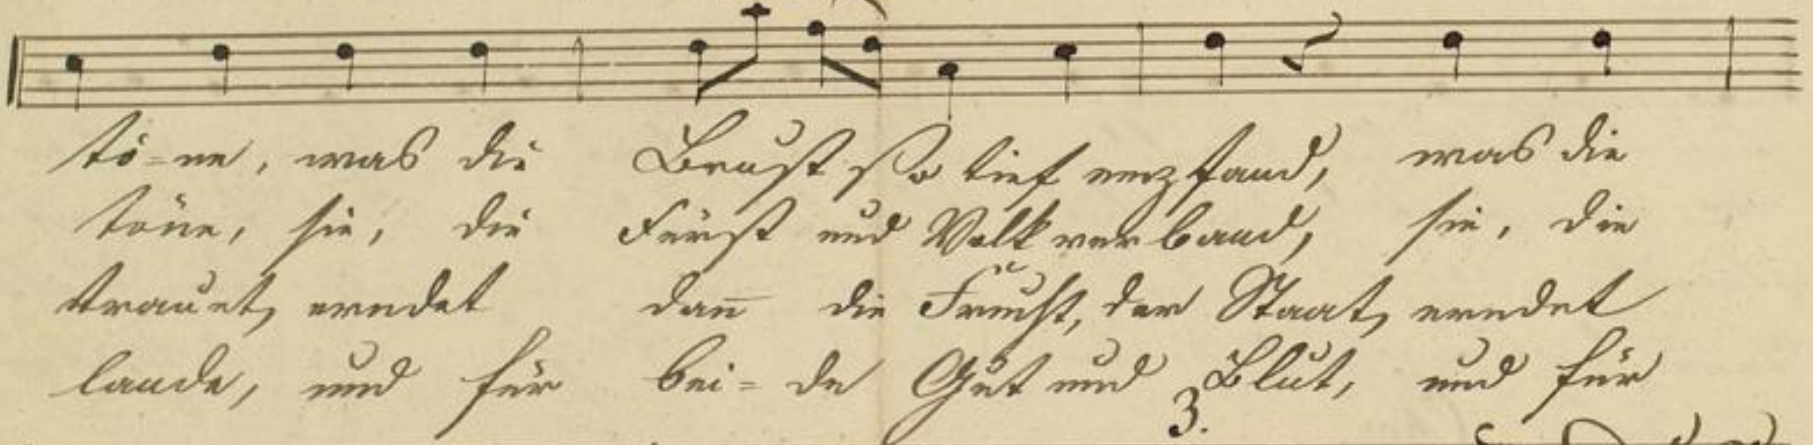 tö=ne, was die Brust so tief empfand, was die
töne, sie, die Fürst und Volk verband, sie, die
trauet, erndet dann die Frucht, der Staat, erndet
lande, und für bei=de Gut und Blut, und für
3.